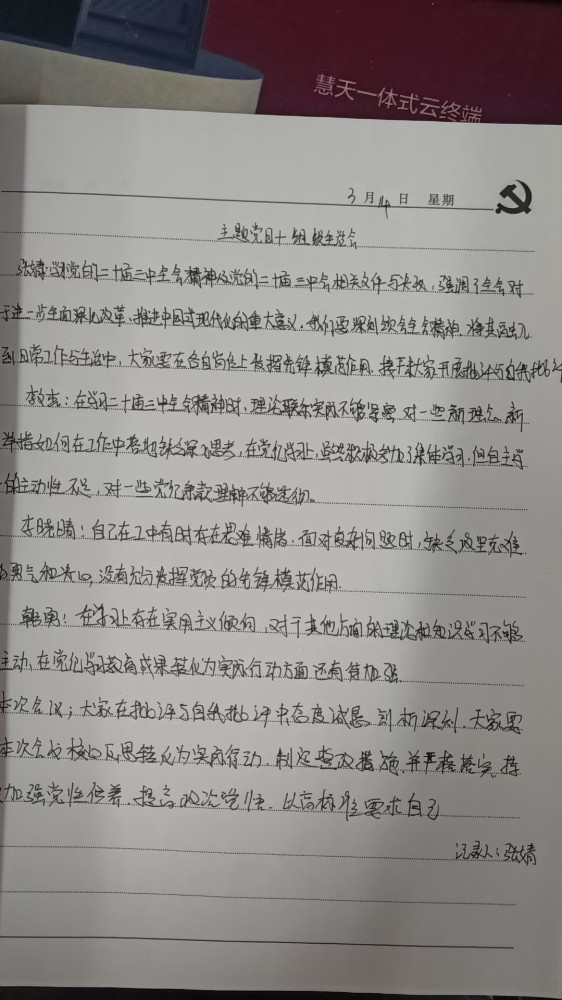 慧天一体式云终端
3月14日 星期
主题党日+组织生活会
张婧:学习党的二十届三中全会精神以及党的二十届三中全会相关文件与决议,强调了全会对
于进一步全面深化改革、推进中国式现代化的重大意义。我们要深刻领会全会精神,将其
到日常工作与生活中,大家要在各自岗位上发挥先锋模范作用,接下来大家开展批评与自我批评
:在学习二十届三中全会精神时,理论联系实际不够紧密,对一些新理念、新
举措如何在工作中落地缺乏深入思考,在党纪学习上,虽然积极参加了集体学习,但自主学
的主动性不足,对一些党纪条款理解不够透彻。
李晓晴:自己在工中有时存在畏难情绪,面对复杂问题时,缺乏攻坚克难
勇气和决心,没有充分发挥党员的先锋模范作用
韩勇:在学习上存在实用主义倾向,对于其他方面的理论和知识学习不够
主动,在党纪学习教育成果转化为实际行动方面还有待加强
本次会议:大家在批评与自我批评中态度诚恳,剖析深刻,大家要
本次会议 反思转化为实际行动,制定整改措施,并严格落实,持
加强党性修养,提高政治觉悟,以高标准要求自己
记录人:张婧